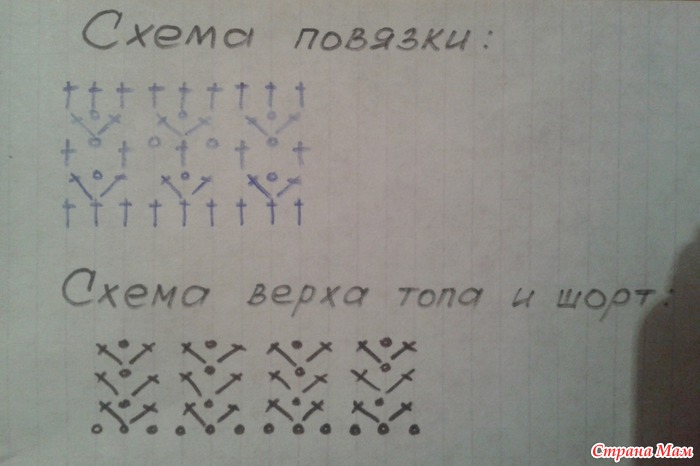 Схема повязки:
Схема верха топа и шорт:
Страна Мам